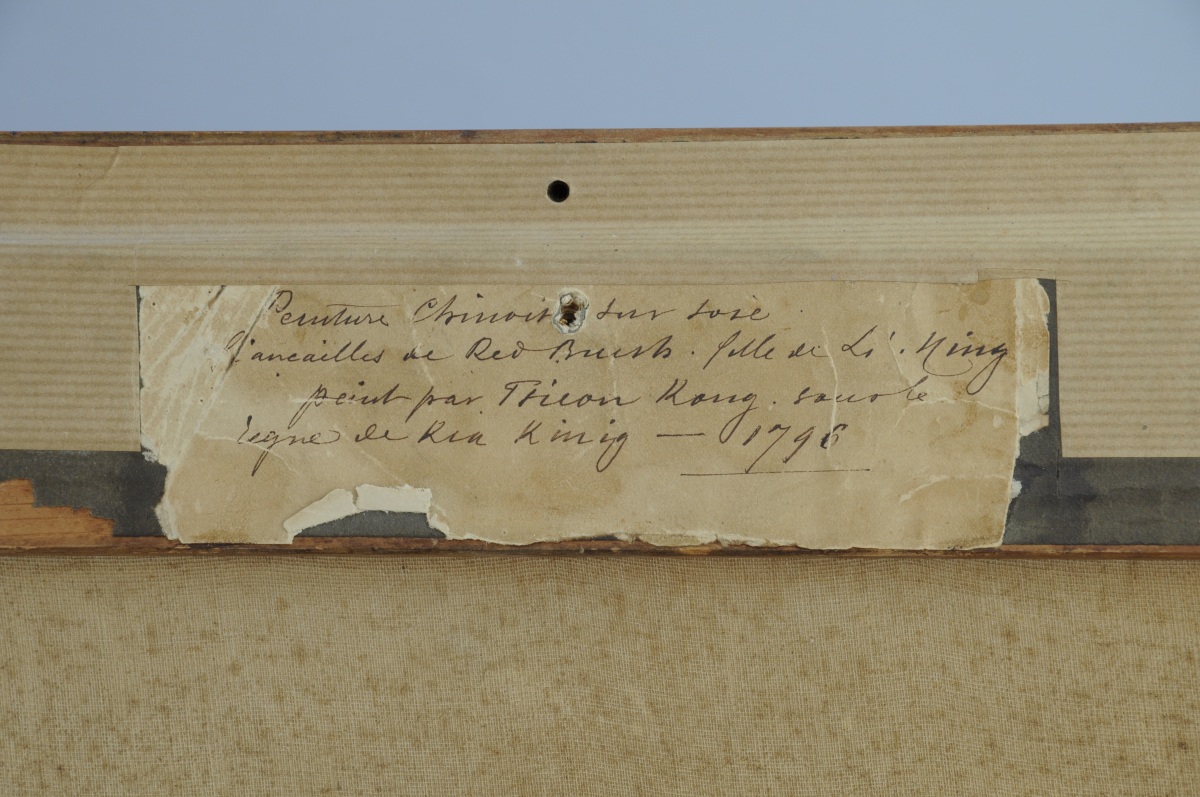 Peinture Chinois sur soie.
fiancailles de Red Brush. fille de Li. Ning
peint par Tsieon Kong. sous le
règne de Kea Kinig — 1796